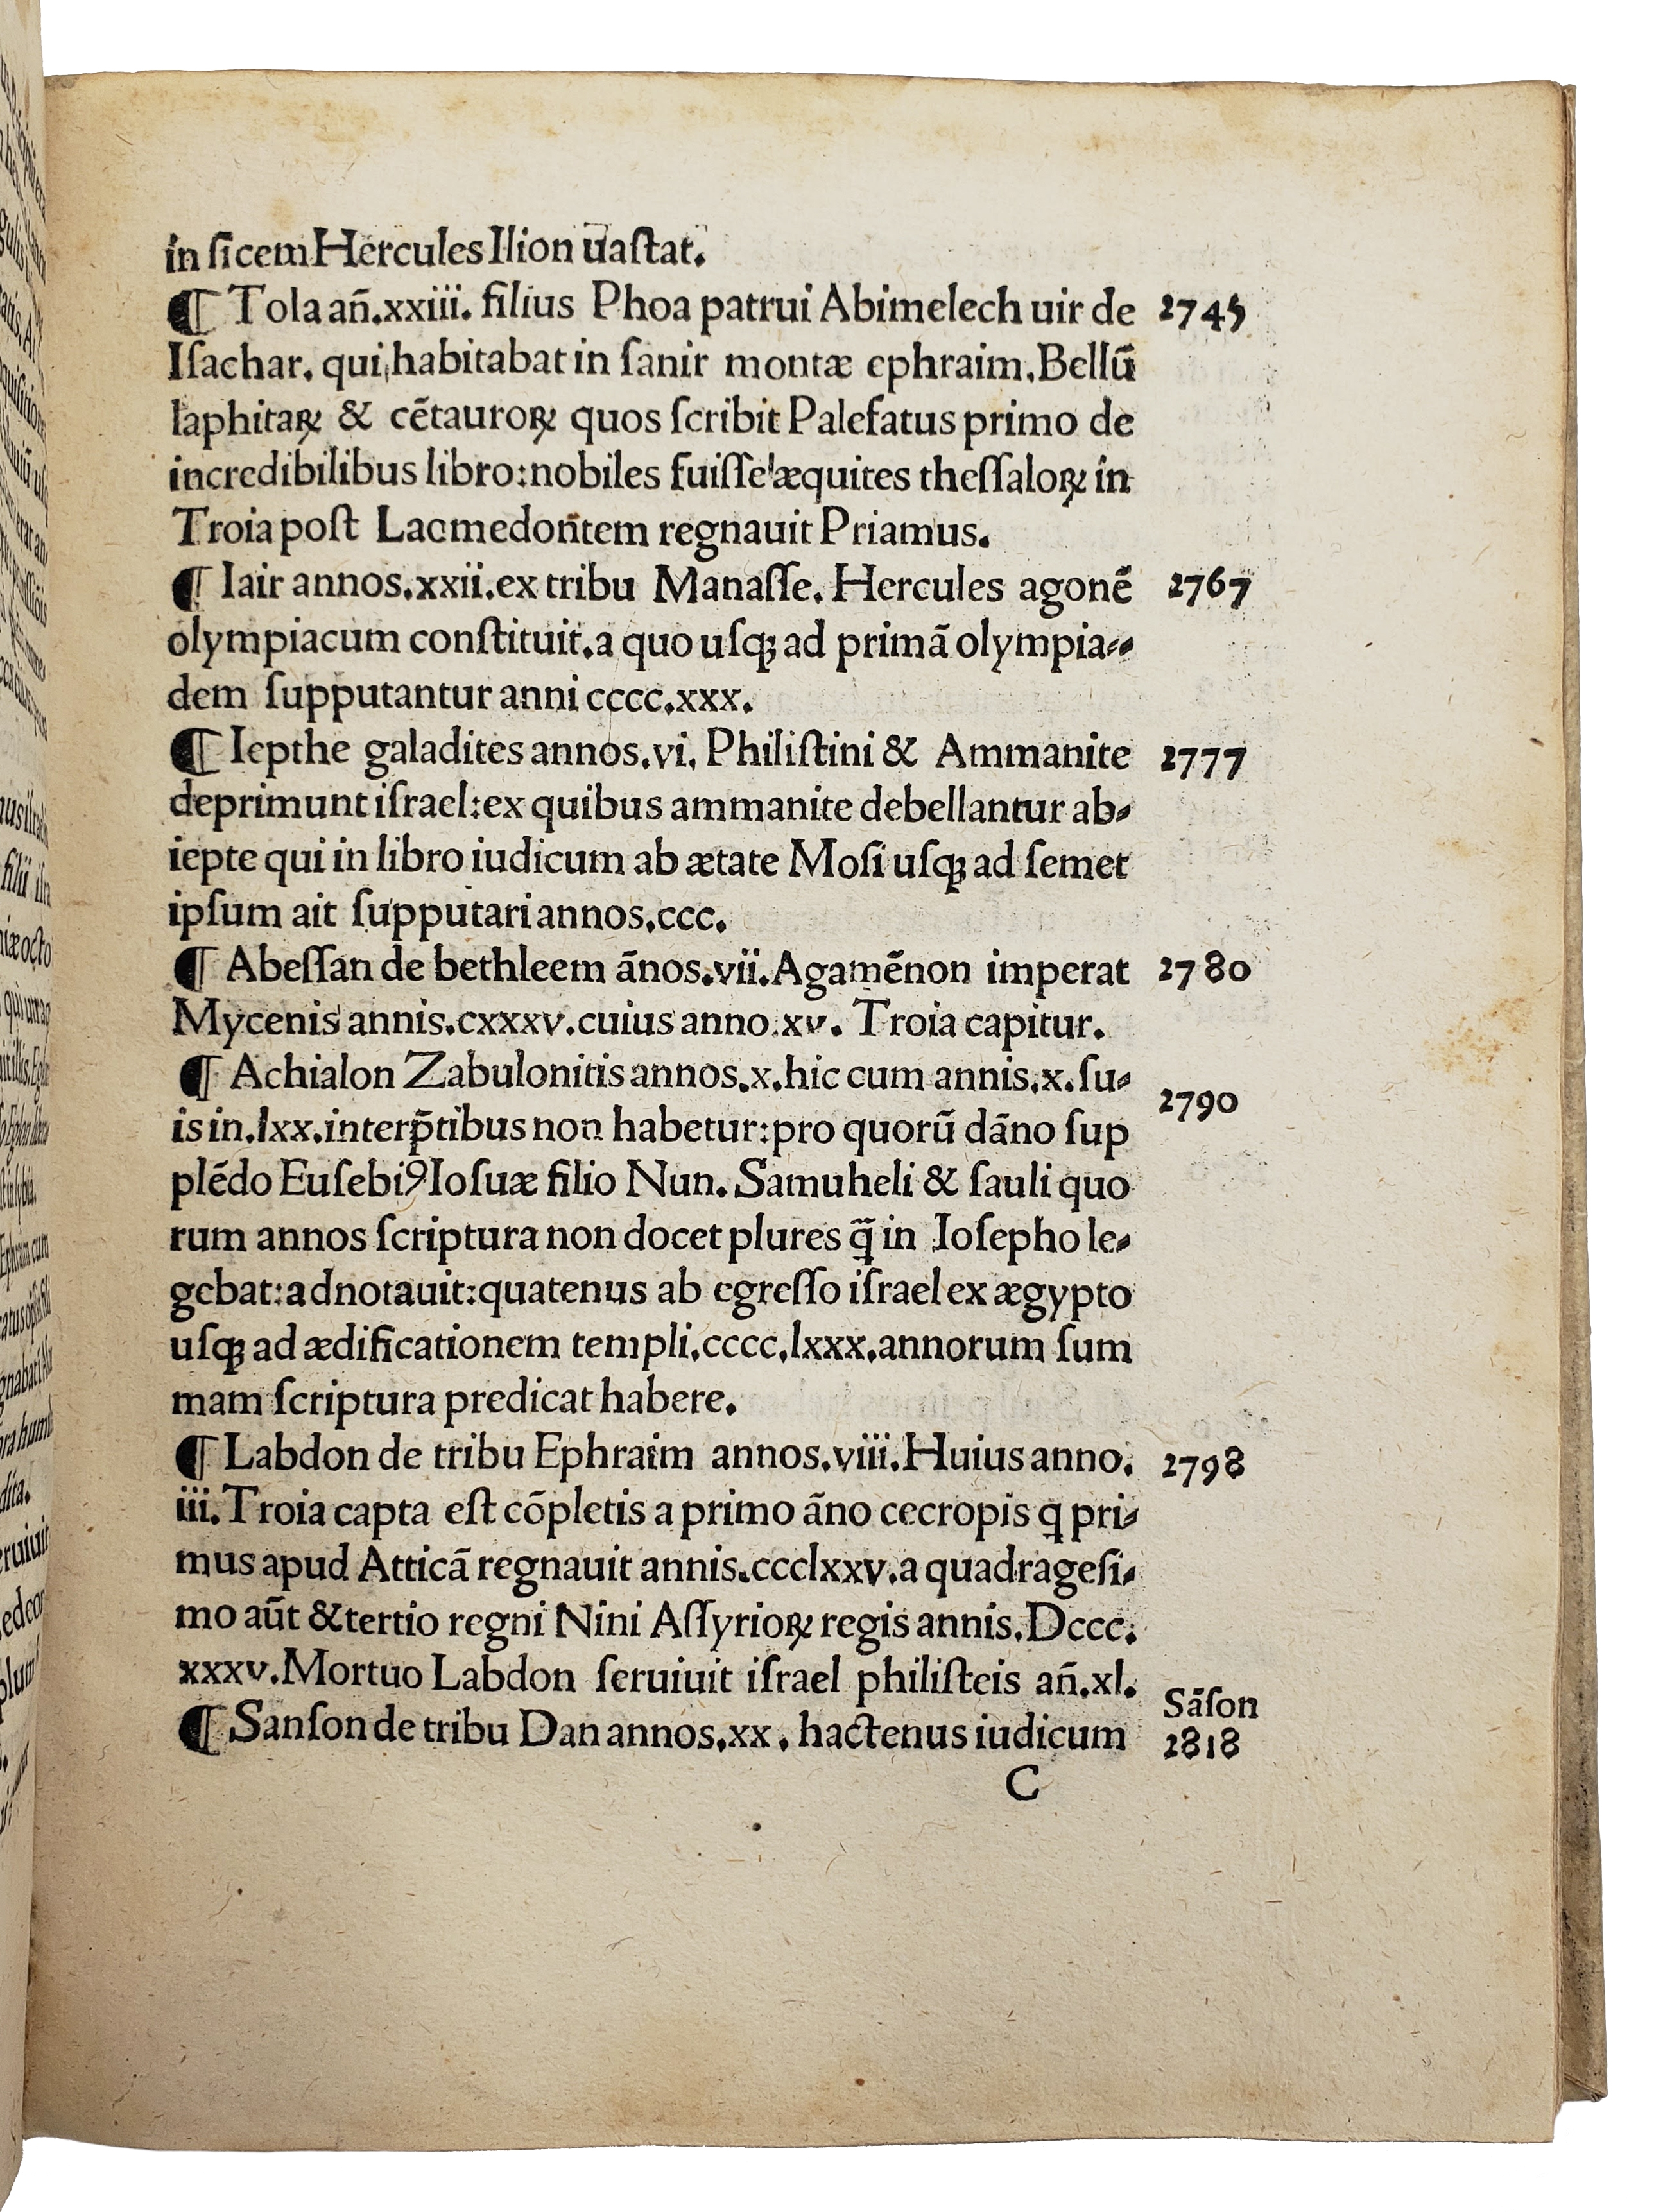 in ſicem Hercules Ilion uaſtat.
¶ Tola an̄.xxiii. filius Phoa patrui Abimelech uir de 2745
Iſachar. qui habitabat in ſanir montæ ephraim. Bellū
laphitaꝝ & cētauroꝝ quos ſcribit Palefatus primo de
incredibilibus libro: nobiles fuiſſe æquites theſſaloꝝ in
Troia poſt Laomedontem regnauit Priamus.
¶ Iair annos.xxii. ex tribu Manaſſe. Hercules agonē 2767
olympiacum conſtituit. a quo uſqꝫ ad primā olympia⸗
dem ſupputantur anni cccc.xxx.
¶ Iepthe galadites annos.vi. Philiſtini & Ammanite 2777
deprimunt iſrael: ex quibus ammanite debellantur ab⸗
iepte qui in libro iudicum ab ætate Moſi uſqꝫ ad ſemet
ipſum ait ſupputari annos.ccc.
¶ Abeſſan de bethleem ānos.vii. Agamēnon imperat 2780
Mycenis annis.cxxxv. cuius anno.xv. Troia capitur.
¶ Achialon Zabulonitis annos.x. hic cum annis.x. ſu⸗
2790
is in.lxx. interp̄tibus non habetur: pro quorū dāno ſup
plēdo Euſebiꝰ Ioſuæ filio Nun. Samuheli & ſauli quo
rum annos ſcriptura non docet plures q̄ in Ioſepho le⸗
gebat: adnotauit: quatenus ab egreſſo iſrael ex ægypto
uſqꝫ ad ædificationem templi.cccc.lxxx. annorum ſum
mam ſcriptura predicat habere.
¶ Labdon de tribu Ephraim annos.viii. Huius anno. 2798
iii. Troia capta eſt cōpletis a primo āno cecropis q pri⸗
mus apud Atticā regnauit annis.ccclxxv. a quadrageſi⸗
mo aūt & tertio regni Nini Aſſyrioꝝ regis annis. Dccc.
xxxv. Mortuo Labdon ſeruiuit iſrael philiſteis an̄.xl.
Sāſon
¶ Sanſon de tribu Dan annos.xx. hactenus iudicum 2818
C